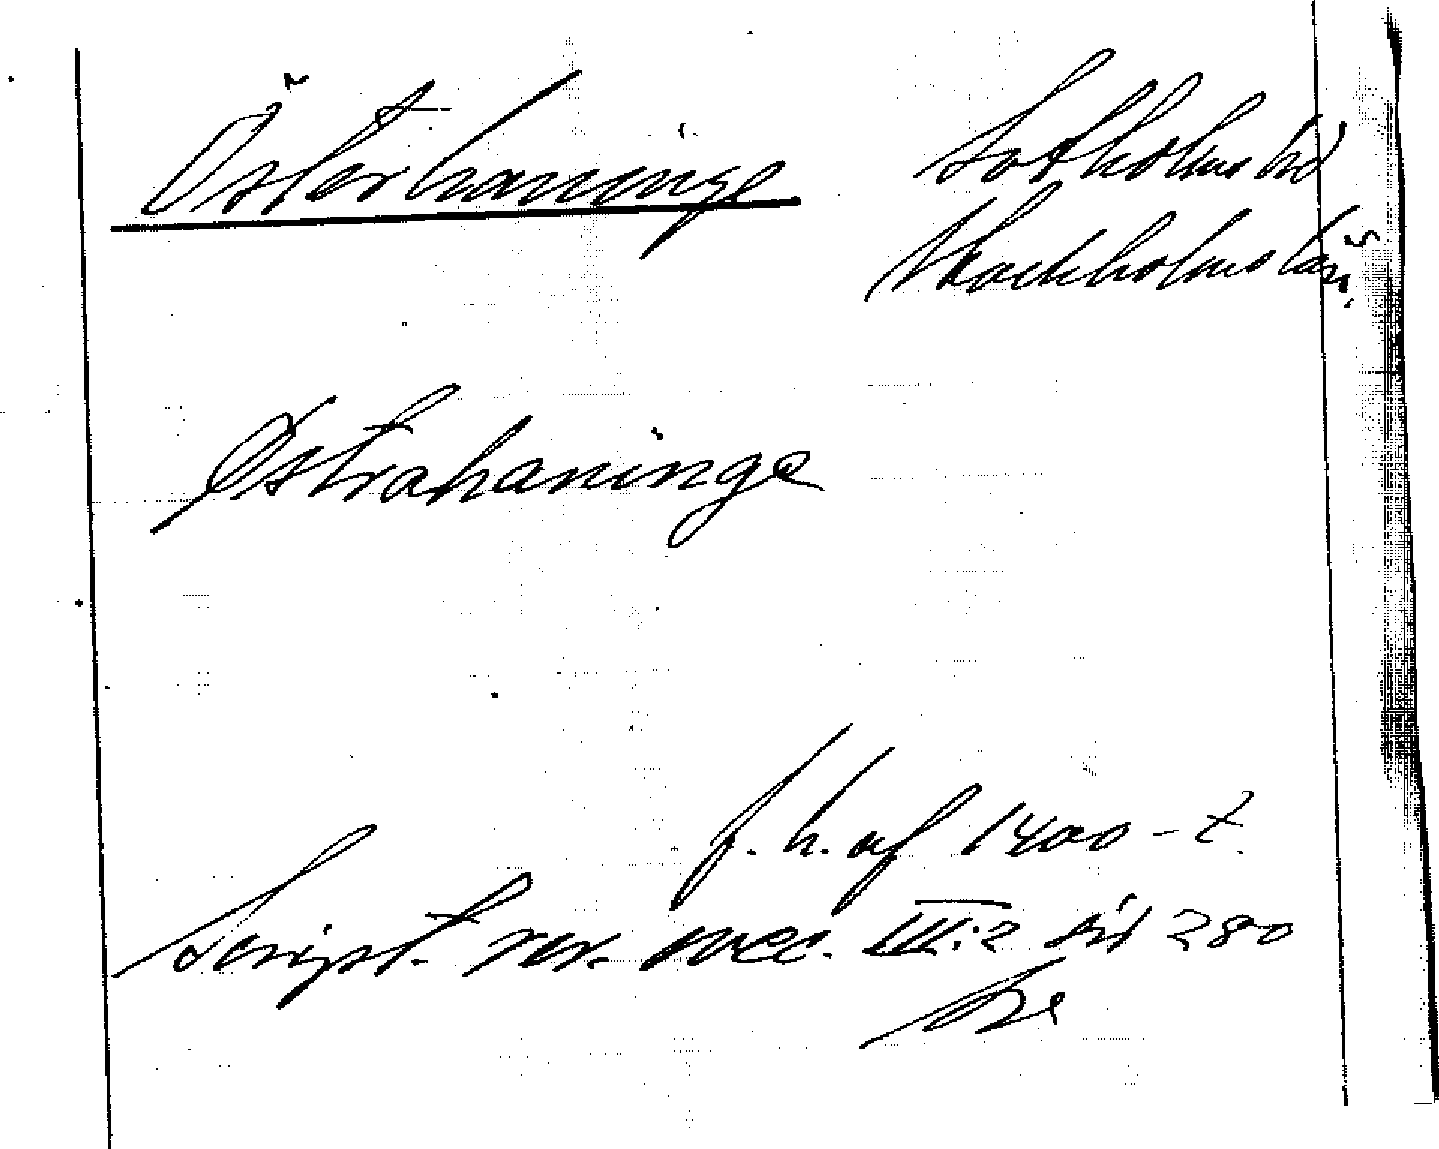 Österhaninge
Sotholms hd
Stockholms län
Østrahaninge
f. h. af 1400-t.
Script. rer. svec. III:2 sid 280